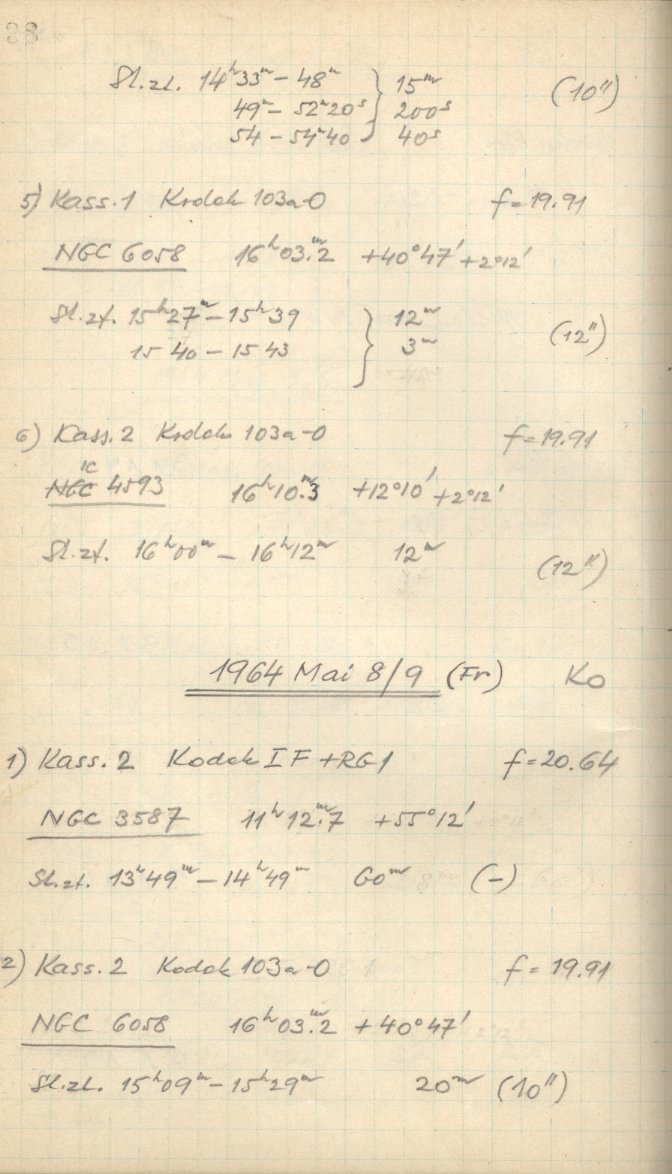 38
St.zt. 14ʰ33ᵐ – 48ᵐ } 15ᵐ (10")
49ᵐ – 52ᵐ20ˢ 200ˢ
54 – 54ᵐ40 40ˢ
5) Kass. 1 Kodak 103a-O f = 19.91
NGC 6058 16ʰ03ᵐ.2 +40°47' +2°12'
St.zt. 15ʰ27ᵐ – 15ʰ39 } 12ᵐ (12")
15 40 – 15 43 3ᵐ
6) Kass. 2 Kodak 103a-O f = 19.91
NGC IC 4593 16ʰ10ᵐ.3 +12°10' +2°12'
St.zt. 16ʰ00ᵐ – 16ʰ12ᵐ 12ᵐ (12")
1964 Mai 8/9 (Fr) Ko
1) Kass. 2 Kodak IF + RG1 f = 20.64
NGC 3587 11ʰ12ᵐ.7 +55°12'
St.zt. 13ʰ49ᵐ – 14ʰ49ᵐ 60ᵐ (–)
2) Kass. 2 Kodak 103a-O f = 19.91
NGC 6058 16ʰ03ᵐ.2 +40°47'
St.zt. 15ʰ09ᵐ – 15ʰ29ᵐ 20ᵐ (10")